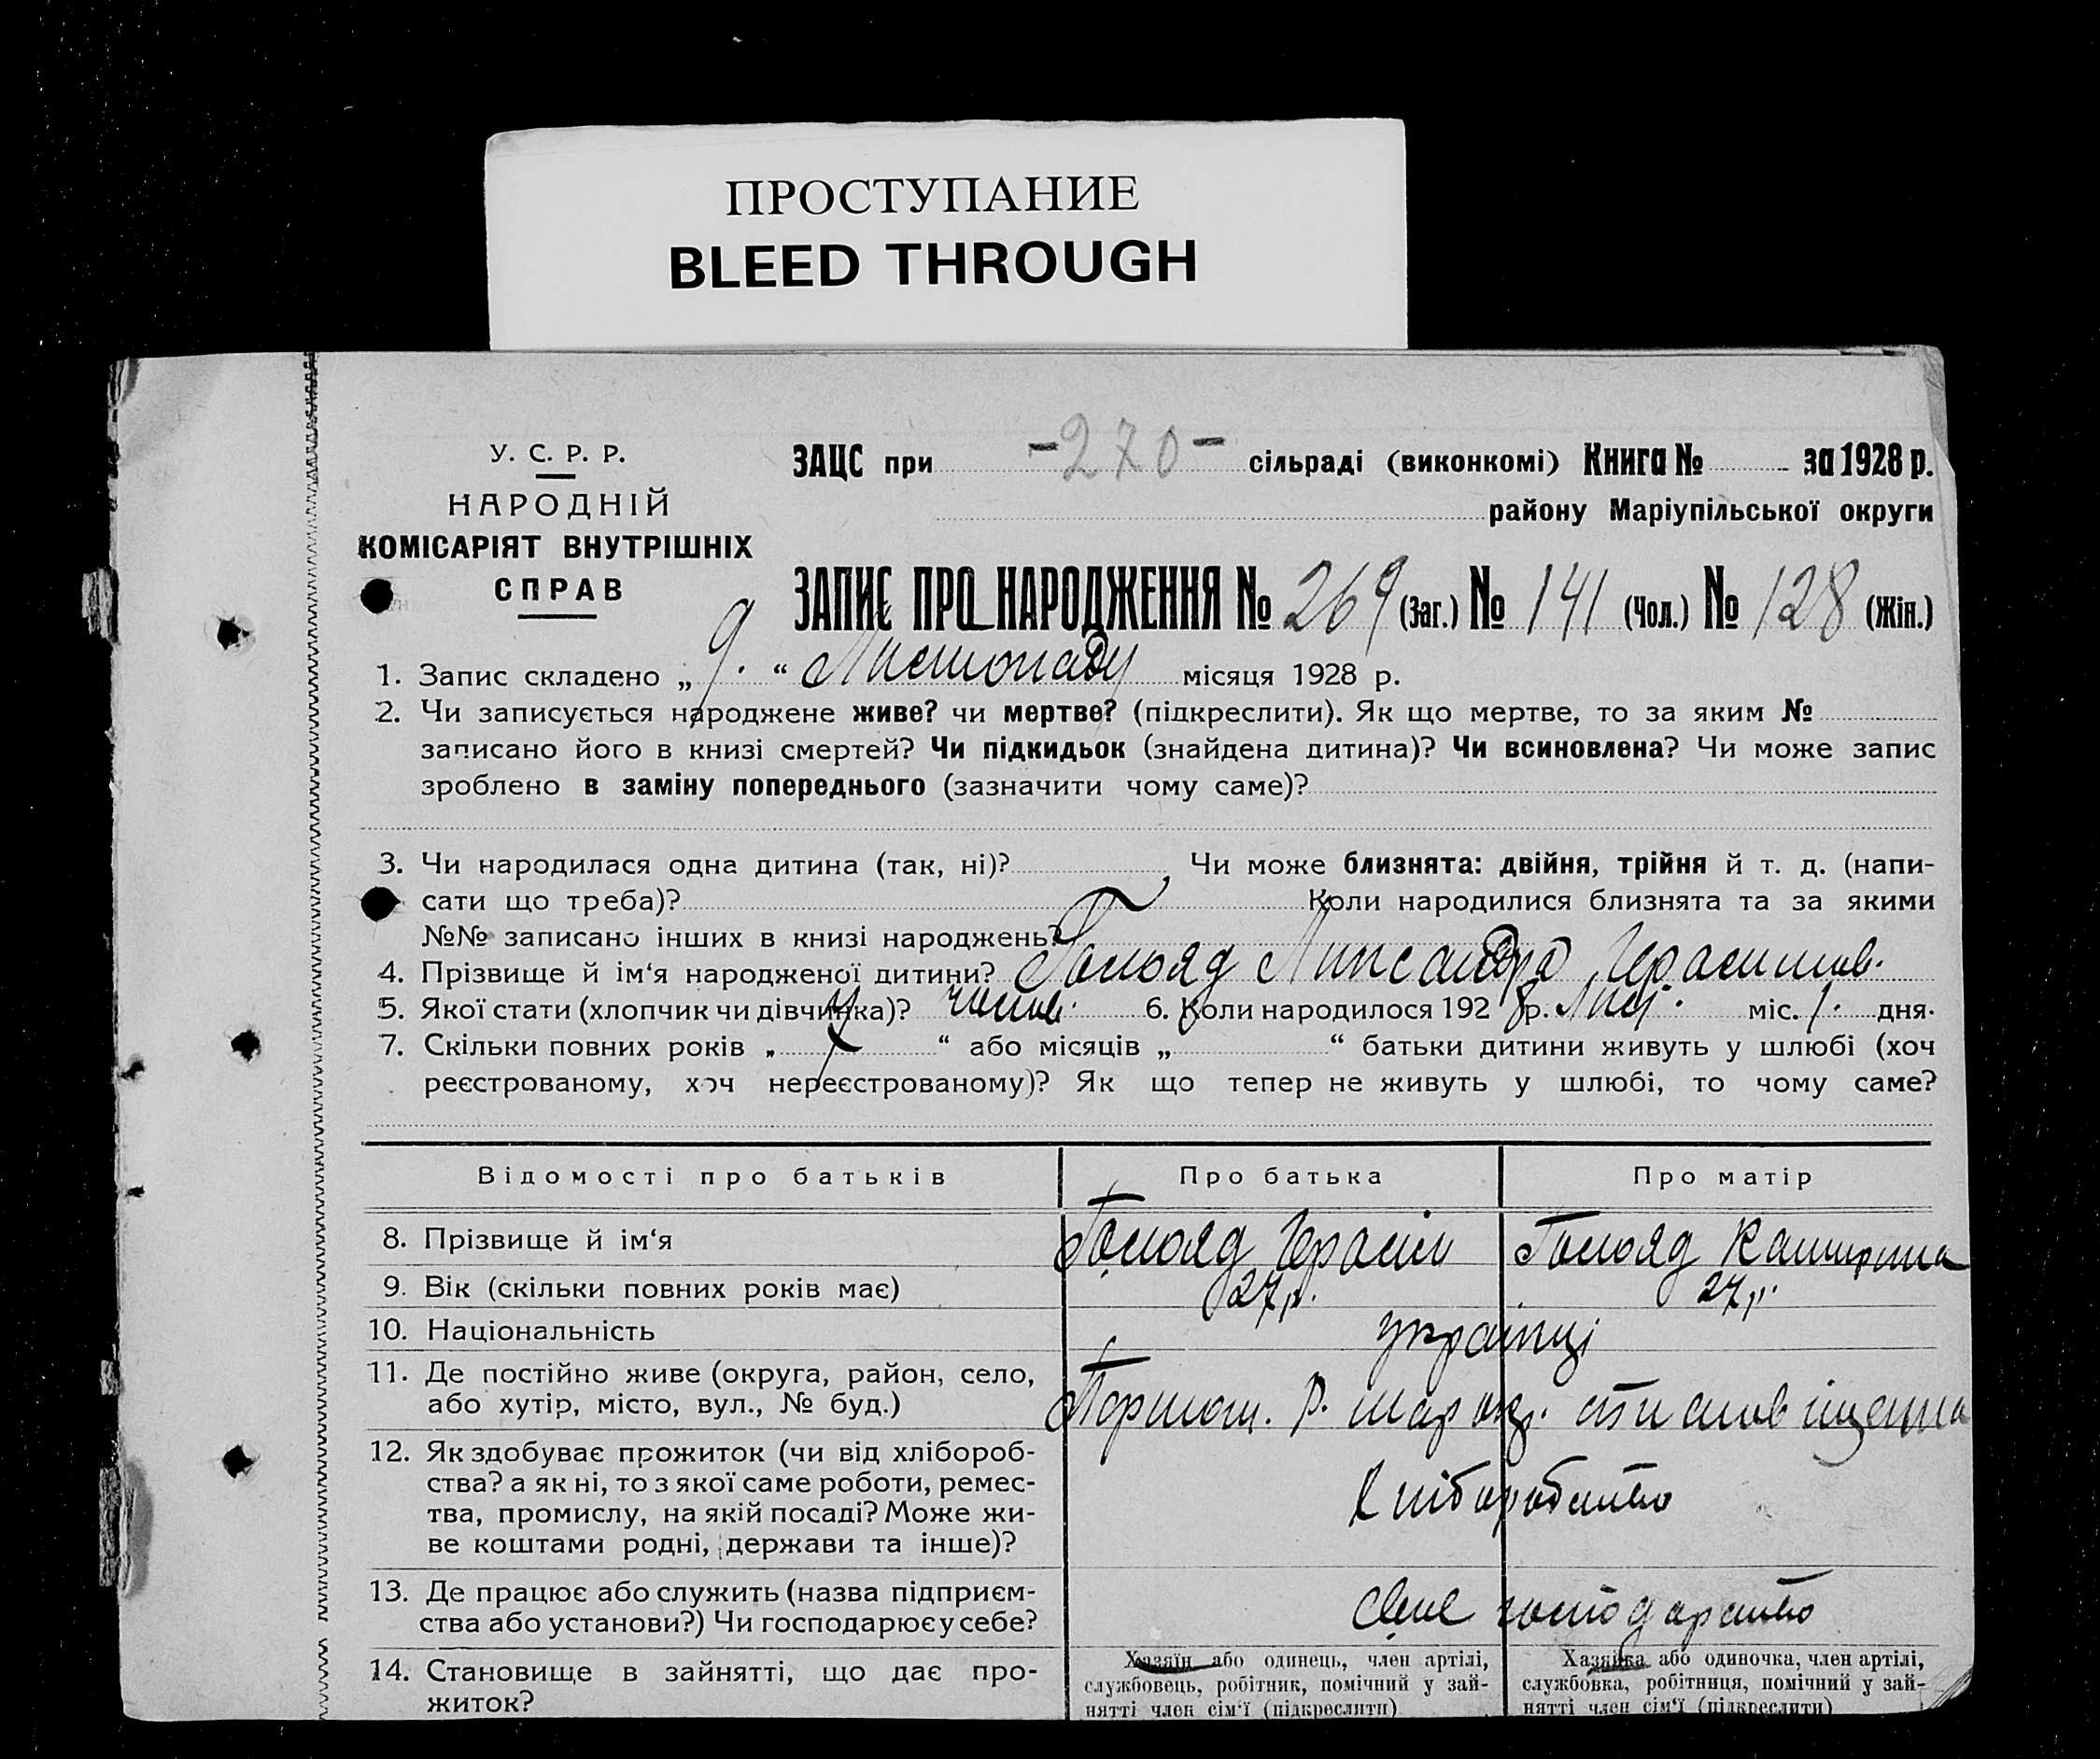 ПРОСТУПАНИЕ
BLEED THROUGH
У. С. Р. Р.
НАРОДНІЙ
КОМІСАРІЯТ ВНУТРІШНІХ
СПРАВ
ЗАЦС при -270- сільраді (виконкомі) Книга № за 1928 р.
району Маріупільської округи
ЗАПИС ПРО НАРОДЖЕННЯ № 269 (Заг.) № 141 (Чол.) № 128 (Жін.)
1. Запис складено „ 9. “ Листопаду місяця 1928 р.
2. Чи записується народжене живе? чи мертве? (підкреслити). Як що мертве, то за яким №
записано його в книзі смертей? Чи підкидьок (знайдена дитина)? Чи всиновлена? Чи може запис
зроблено в заміну попереднього (зазначити чому саме)?
3. Чи народилася одна дитина (так, ні)? Чи може близнята: двійня, трійня й т. д. (напи-
сати що треба)? Коли народилися близнята та за якими
№№ записано інших в книзі народжень?
4. Прізвище й ім‘я народженої дитини?
5. Якої стати (хлопчик чи дівчинка)? 6. Коли народилося 192 8 р. Лист. міс. 1. дня.
7. Скільки повних років „ “ або місяців „ “ батьки дитини живуть у шлюбі (хоч
реєстрованому, хоч нереєстрованому)? Як що тепер не живуть у шлюбі, то чому саме?
Відомості про батьків Про батька Про матір
8. Прізвище й ім‘я
9. Вік (скільки повних років має) 27 р. 27 р.
10. Національність українці
11. Де постійно живе (округа, район, село,
або хутір, місто, вул., № буд.)
12. Як здобуває прожиток (чи від хлібороб-
ства? а як ні, то з якої саме роботи, ремес-
тва, промислу, на якій посаді? Може жи-
ве коштами родні, держави та інше)?
Хліборобство
13. Де працює або служить (назва підприєм-
ства або установи?) Чи господарює у себе?
своє господарство
14. Становище в зайнятті, що дає про-
житок?
Хазяїн або одинець, член артілі,
службовець, робітник, помічний у зай-
нятті член сім‘ї (підкреслити)
Хазяйка або одиночка, член артілі,
службовка, робітниця, помічний у зай-
нятті член сім‘ї (підкреслити)